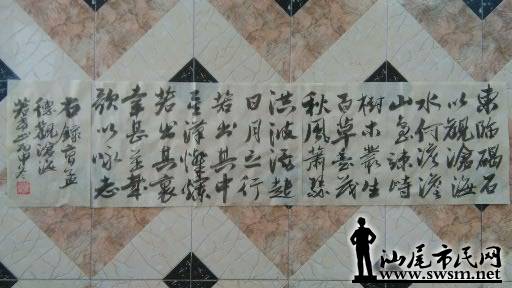 東臨碣石
以觀滄海
水何澹澹
山島竦峙
樹木叢生
百草豐茂
秋風蕭瑟
洪波涌起
日月之行
若出其中
星漢燦爛
若出其裏
幸甚至哉
歌以咏志
右錄曹孟
德觀滄海
汕尾市民网
www.swsm.net